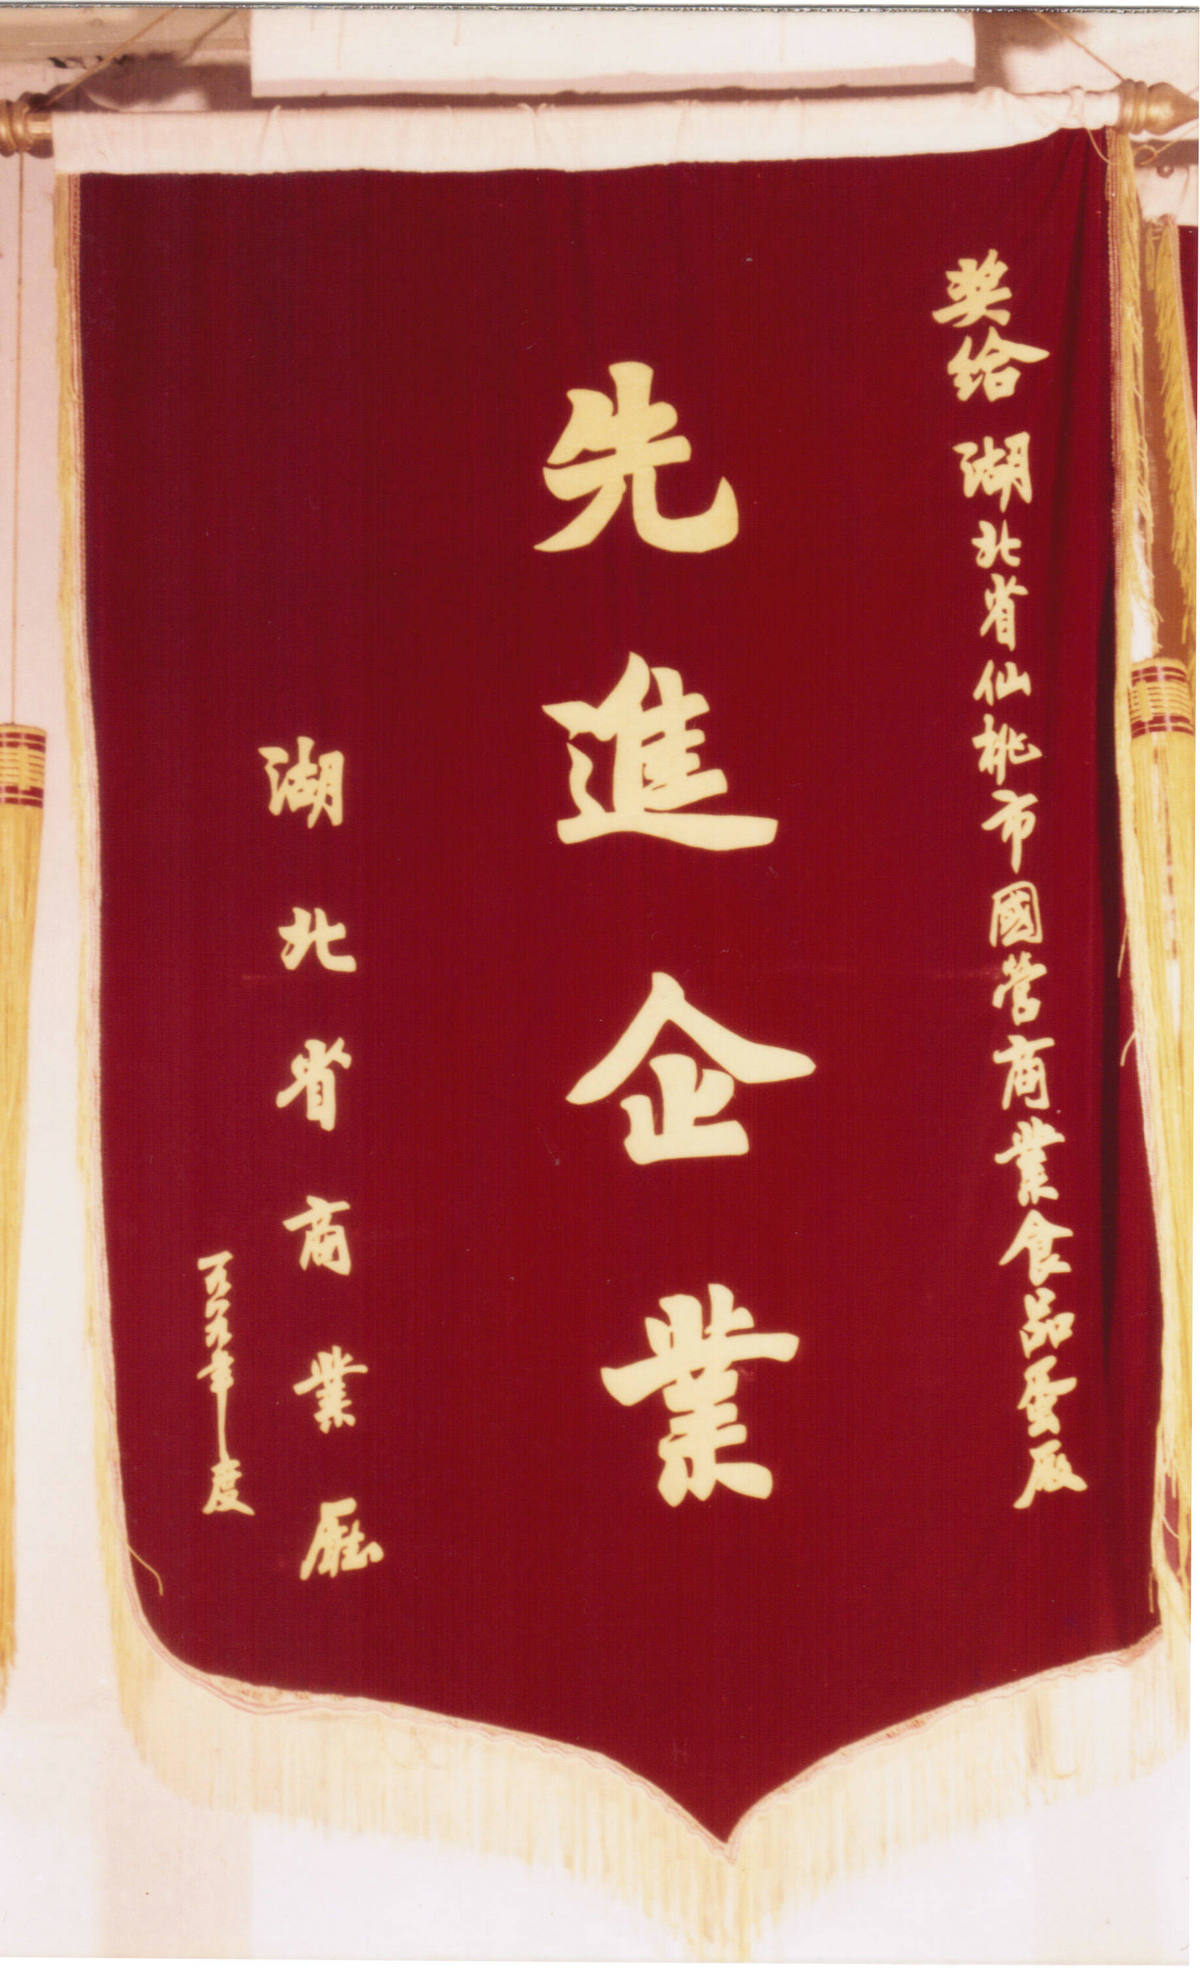 奖给 湖北省仙桃市國营商業食品蛋厰
先進企業
湖北省商業厛
一九八九年度